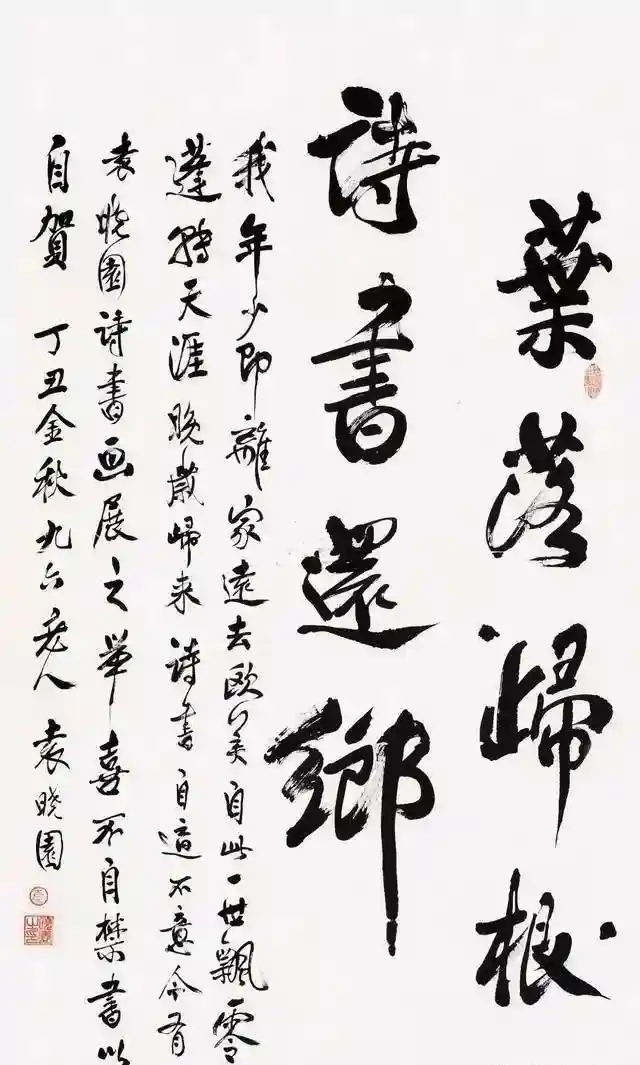 葉落歸根
詩書還鄉
我年少即離家遠去欧美自此一世飄零
蓬轉天涯晚歲歸来詩書自適不意今有
袁曉園詩書画展之舉喜不自禁書以
自賀 丁丑金秋九六老人 袁曉園